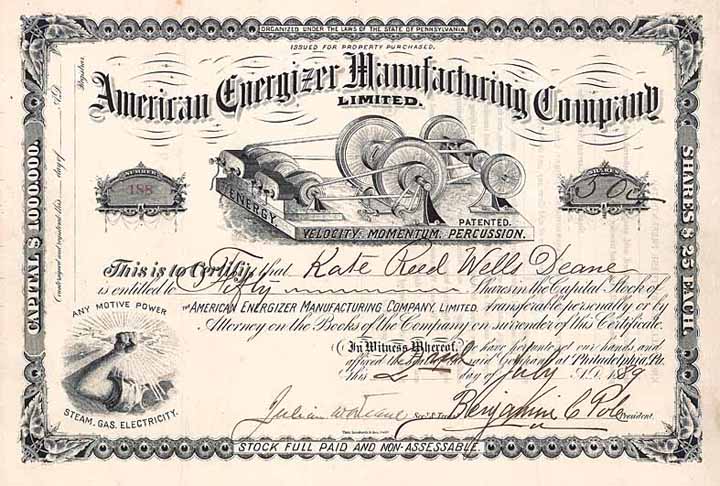 ORGANIZED UNDER THE LAWS OF THE STATE OF PENNSYLVANIA
ISSUED FOR PROPERTY PURCHASED.
American Energizer Manufacturing Company
LIMITED.
NUMBER
188
SHARES
50
ENERGY
PATENTED.
VELOCITY. MOMENTUM. PERCUSSION.
This is to Certify that Kate Reed Wells Deane
is entitled to Fifty Shares in the Capital Stock of
THE AMERICAN ENERGIZER MANUFACTURING COMPANY, LIMITED. transferable personally or by
Attorney on the Books of the Company on surrender of this Certificate.
In Witness Whereof, We have hereunto set our hands, and
affixed the Seal of said Company at Philadelphia, Pa.
this 2 day of July A.D. 1889
Sec'y & Treas. Benjamin C Pole President.
ANY MOTIVE POWER
STEAM, GAS, ELECTRICITY.
STOCK FULL PAID AND NON-ASSESSABLE.
CAPITAL $1000,000.
SHARES $25 EACH.
Countersigned and registered this day of A.D.
Registrar.